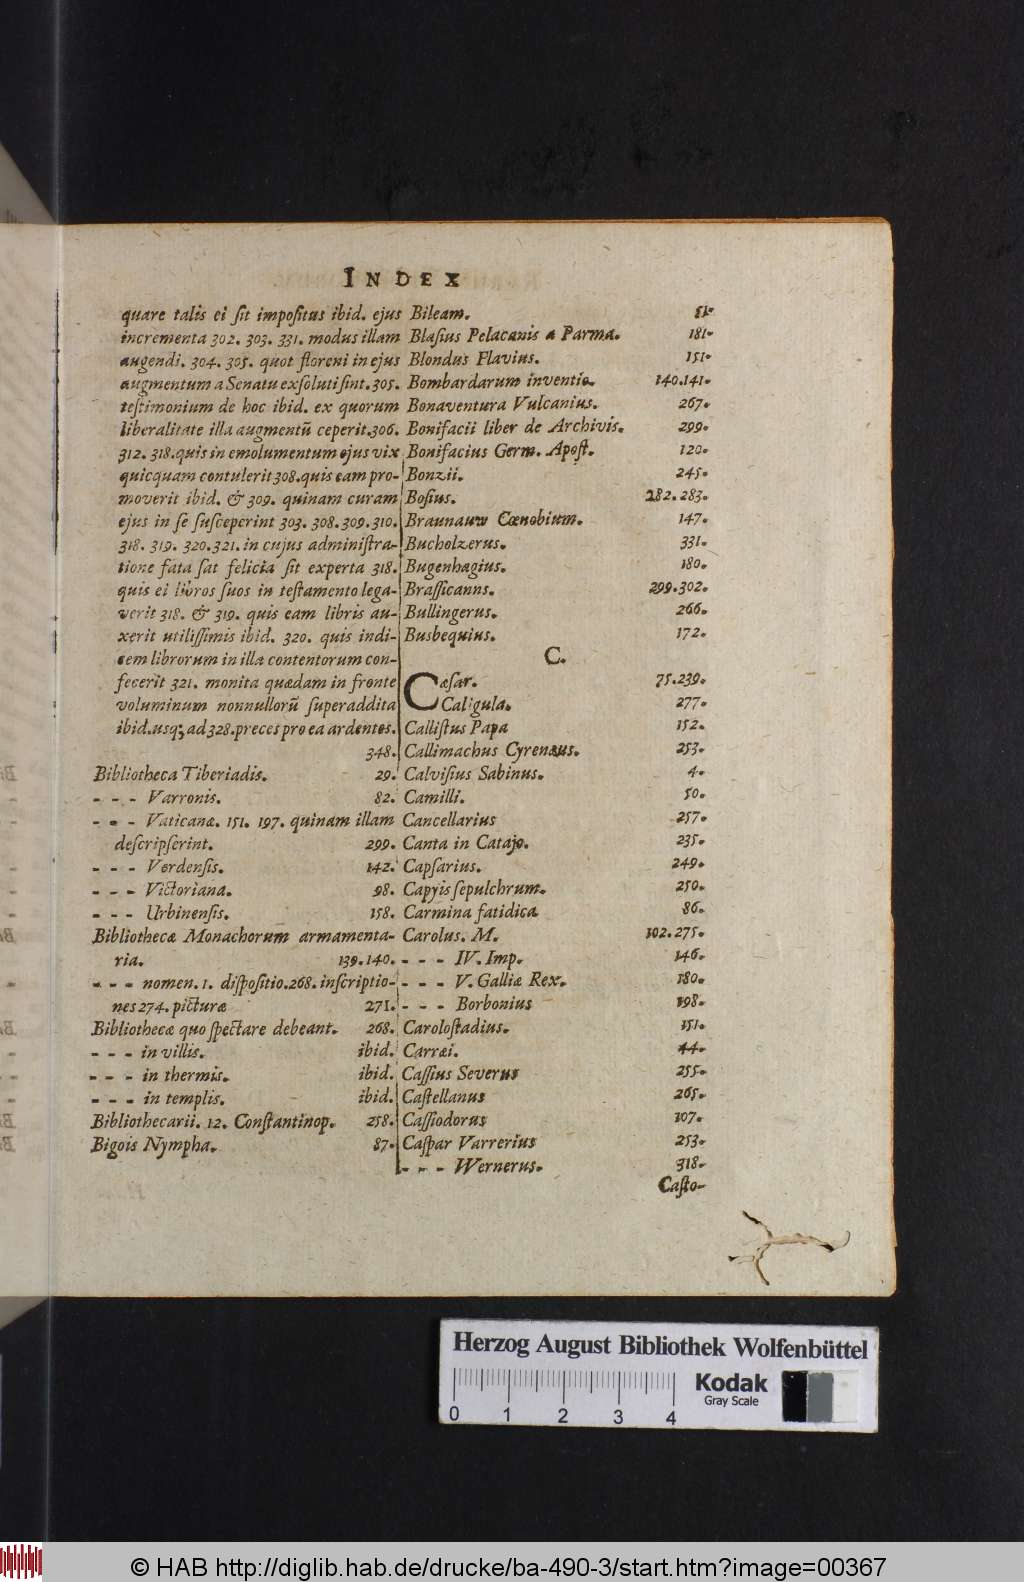 INDEX
quare talis ei ſit impoſitus ibid. ejus
incrementa 302. 303. 331. modus illam
augendi. 304. 305. quot floreni in ejus
augmentum a Senatu exſoluti ſint. 305.
teſtimonium de hoc ibid. ex quorum
liberalitate illa augmentũ ceperit. 306.
312. 318. quis in emolumentum ejus vix
quicquam contulerit 308. quis eam pro-
moverit ibid. & 309. quinam curam
ejus in ſe ſuſceperint 303. 308. 309. 310.
318. 319. 320. 321. in cujus adminiſtra-
tione fata ſat felicia ſit experta 318.
quis ei libros ſuos in teſtamento lega-
verit 318. & 319. quis eam libris au-
xerit utiliſſimis ibid. 320. quis indi-
cem librorum in illa contentorum con-
fecerit 321. monita quædam in fronte
voluminum nonnullorũ ſuperaddita
ibid. usq; ad 328. preces pro ea ardentes.
348.
Bibliotheca Tiberiadis. 29.
- - - Varronis. 82.
- - - Vaticanæ. 151. 197. quinam illam
deſcripſerint. 299.
- - - Verdenſis. 142.
- - - Victoriana. 98.
- - - Urbinenſis. 158.
Bibliothecæ Monachorum armamenta-
ria. 139. 140.
- - - nomen. 1. diſpoſitio. 268. inſcriptio-
nes 274. picturæ 271.
Bibliothecæ quo ſpectare debeant. 268.
- - - in villis. ibid.
- - - in thermis. ibid.
- - - in templis. ibid.
Bibliothecarii. 12. Conſtantinop. 258.
Bigois Nympha. 87.
Bileam. 51.
Blaſius Pelacanis a Parma. 181.
Blondus Flavius. 151.
Bombardarum inventio. 140. 141.
Bonaventura Vulcanius. 267.
Bonifacii liber de Archivis. 299.
Bonifacius Germ. Apoſt. 120.
Bonzii. 245.
Boſius. 282. 283.
Braunauw Cœnobium. 147.
Bucholzerus. 331.
Bugenhagius. 180.
Braſſicanns. 299. 302.
Bullingerus. 266.
Busbequius. 172.
C.
Cæſar. 75. 239.
Caligula. 277.
Calliſtus Papa 152.
Callimachus Cyrenæus. 253.
Calviſius Sabinus. 4.
Camilli. 50.
Cancellarius 257.
Canta in Catajo. 235.
Capſarius. 249.
Capyis ſepulchrum. 250.
Carmina fatidica 86.
Carolus. M. 102. 275.
- - - IV. Imp. 146.
- - - V. Galliæ Rex. 180.
- - - Borbonius 198.
Caroloſtadius. 151.
Carræi. 44.
Caſſius Severus 255.
Caſtellanus 265.
Caſſiodorus 107.
Caſpar Varrerius 253.
- - - Wernerus. 318.
Caſto-
Herzog August Bibliothek Wolfenbüttel
0 1 2 3 4
Kodak
Gray Scale
© HAB http://diglib.hab.de/drucke/ba-490-3/start.htm?image=00367